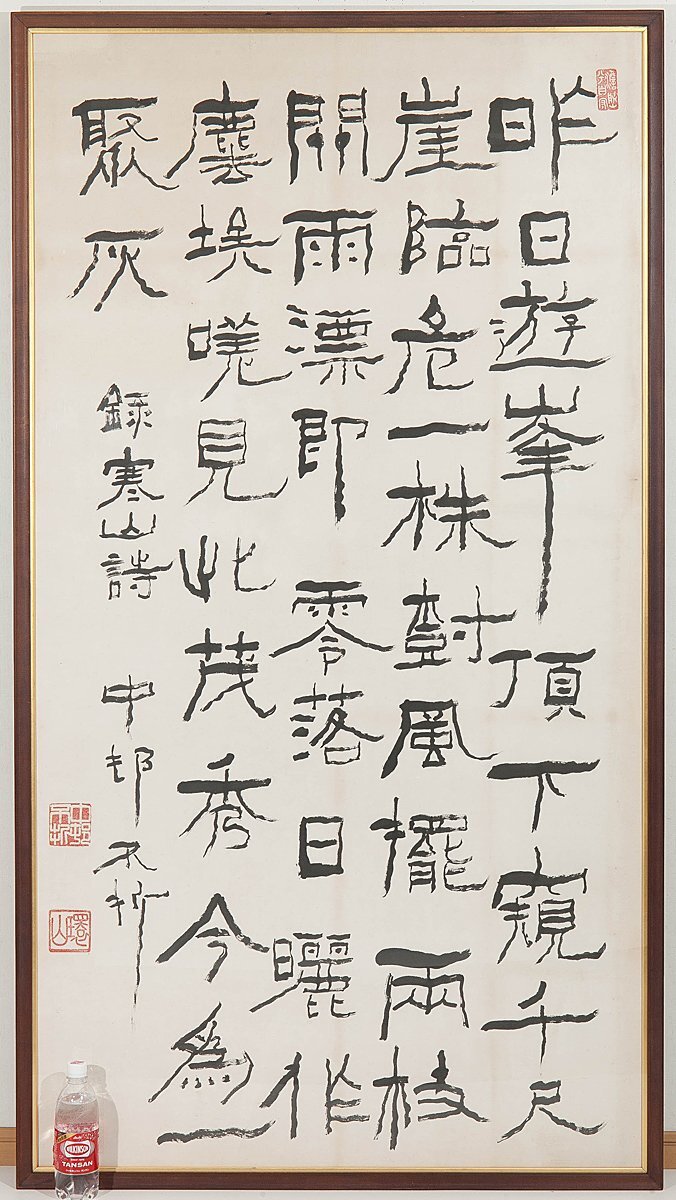 昨日遊峯頂下窺千尺
崖臨危一株樹風擺兩枝
開雨漂即零落日曬作
塵埃嗟見此茂秀今為一
聚灰
錄寒山詩
中邨不折
中邨不折
環山
WILKINSON
TANSAN